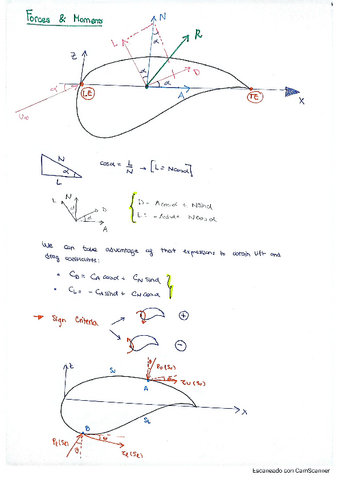 Forces & Moments
N
R
L
D
Z
α
α
α
LE
A
TE
X
U∞
N
L
α
cosα = L/N → [L = Ncosα]
L
N
D
A
D = Acosα + Nsinα
L = -Asinα + Ncosα
We can take advantage of that expressions to obtain lift and
drag coefficients:
• CD = CA cosα + CN sinα
• CL = -CA sinα + CN cosα
→ Sign Criteria
+
-
Z
Su
A
Pu(Su)
θ
τu(Su)
X
Sl
B
Pl(Sl)
θ
τl(Sl)
Escaneado con CamScanner